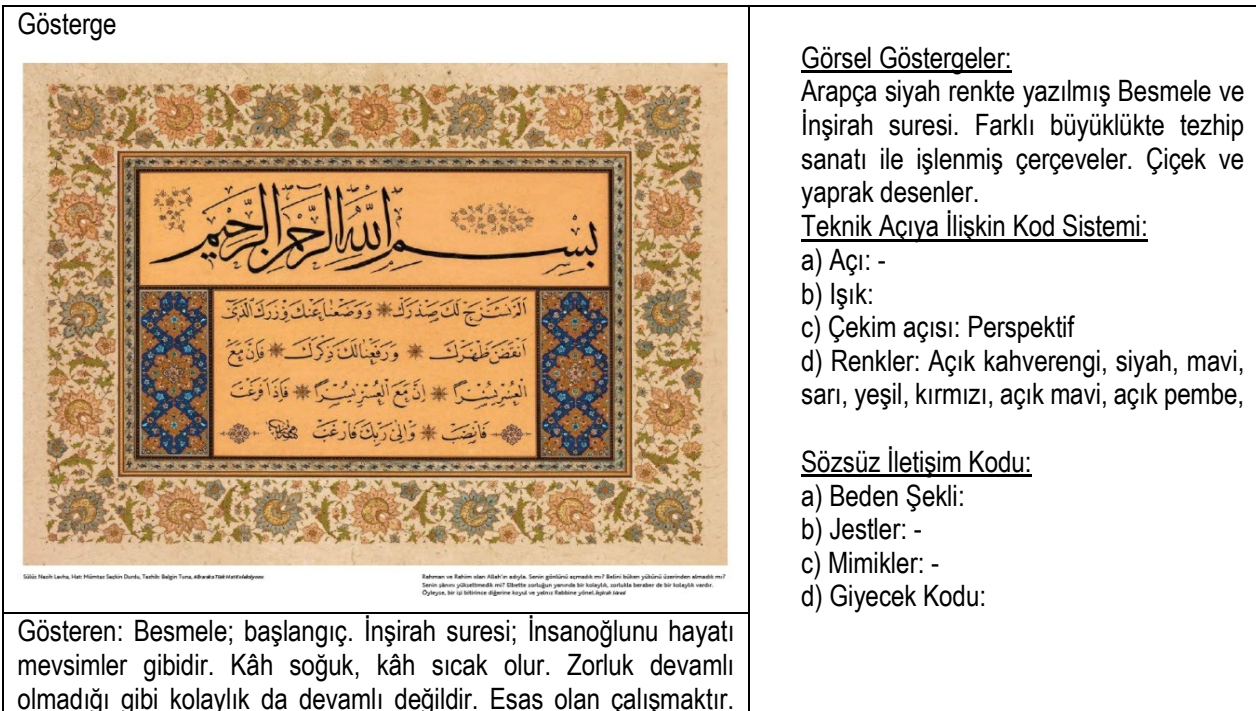 Gösterge
بِسْمِ اللهِ الرَّحْمٰنِ الرَّحِيمِ
اَلَمْ نَشْرَحْ لَكَ صَدْرَكَ ❋ وَوَضَعْنَا عَنْكَ وِزْرَكَ الَّذِى
اَنْقَضَ ظَهْرَكَ ❋ وَرَفَعْنَا لَكَ ذِكْرَكَ ❋ فَاِنَّ مَعَ
الْعُسْرِ يُسْرًا ❋ اِنَّ مَعَ الْعُسْرِ يُسْرًا ❋ فَاِذَا فَرَغْتَ
فَانْصَبْ ❋ وَاِلٰى رَبِّكَ فَارْغَبْ
Sülüs Nesih Levha, Hat: Mümtaz Seçkin Durdu, Tezhib: Belgin Tuna, Albaraka Türk Hat Koleksiyonu
Rahman ve Rahim olan Allah'ın adıyla. Senin gönlünü açmadık mı? Belini büken yükünü üzerinden almadık mı?
Senin şânını yükseltmedik mi? Elbette zorluğun yanında bir kolaylık, zorlukla beraber de bir kolaylık vardır.
Öyleyse, bir işi bitirince diğerine koyul ve yalnız Rabbine yönel. İnşirah Suresi
Gösteren: Besmele; başlangıç. İnşirah suresi; İnsanoğlunu hayatı
mevsimler gibidir. Kâh soğuk, kâh sıcak olur. Zorluk devamlı
olmadığı gibi kolaylık da devamlı değildir. Esas olan çalışmaktır.
Görsel Göstergeler:
Arapça siyah renkte yazılmış Besmele ve
İnşirah suresi. Farklı büyüklükte tezhip
sanatı ile işlenmiş çerçeveler. Çiçek ve
yaprak desenler.
Teknik Açıya İlişkin Kod Sistemi:
a) Açı: -
b) Işık:
c) Çekim açısı: Perspektif
d) Renkler: Açık kahverengi, siyah, mavi,
sarı, yeşil, kırmızı, açık mavi, açık pembe,
Sözsüz İletişim Kodu:
a) Beden Şekli:
b) Jestler: -
c) Mimikler: -
d) Giyecek Kodu: